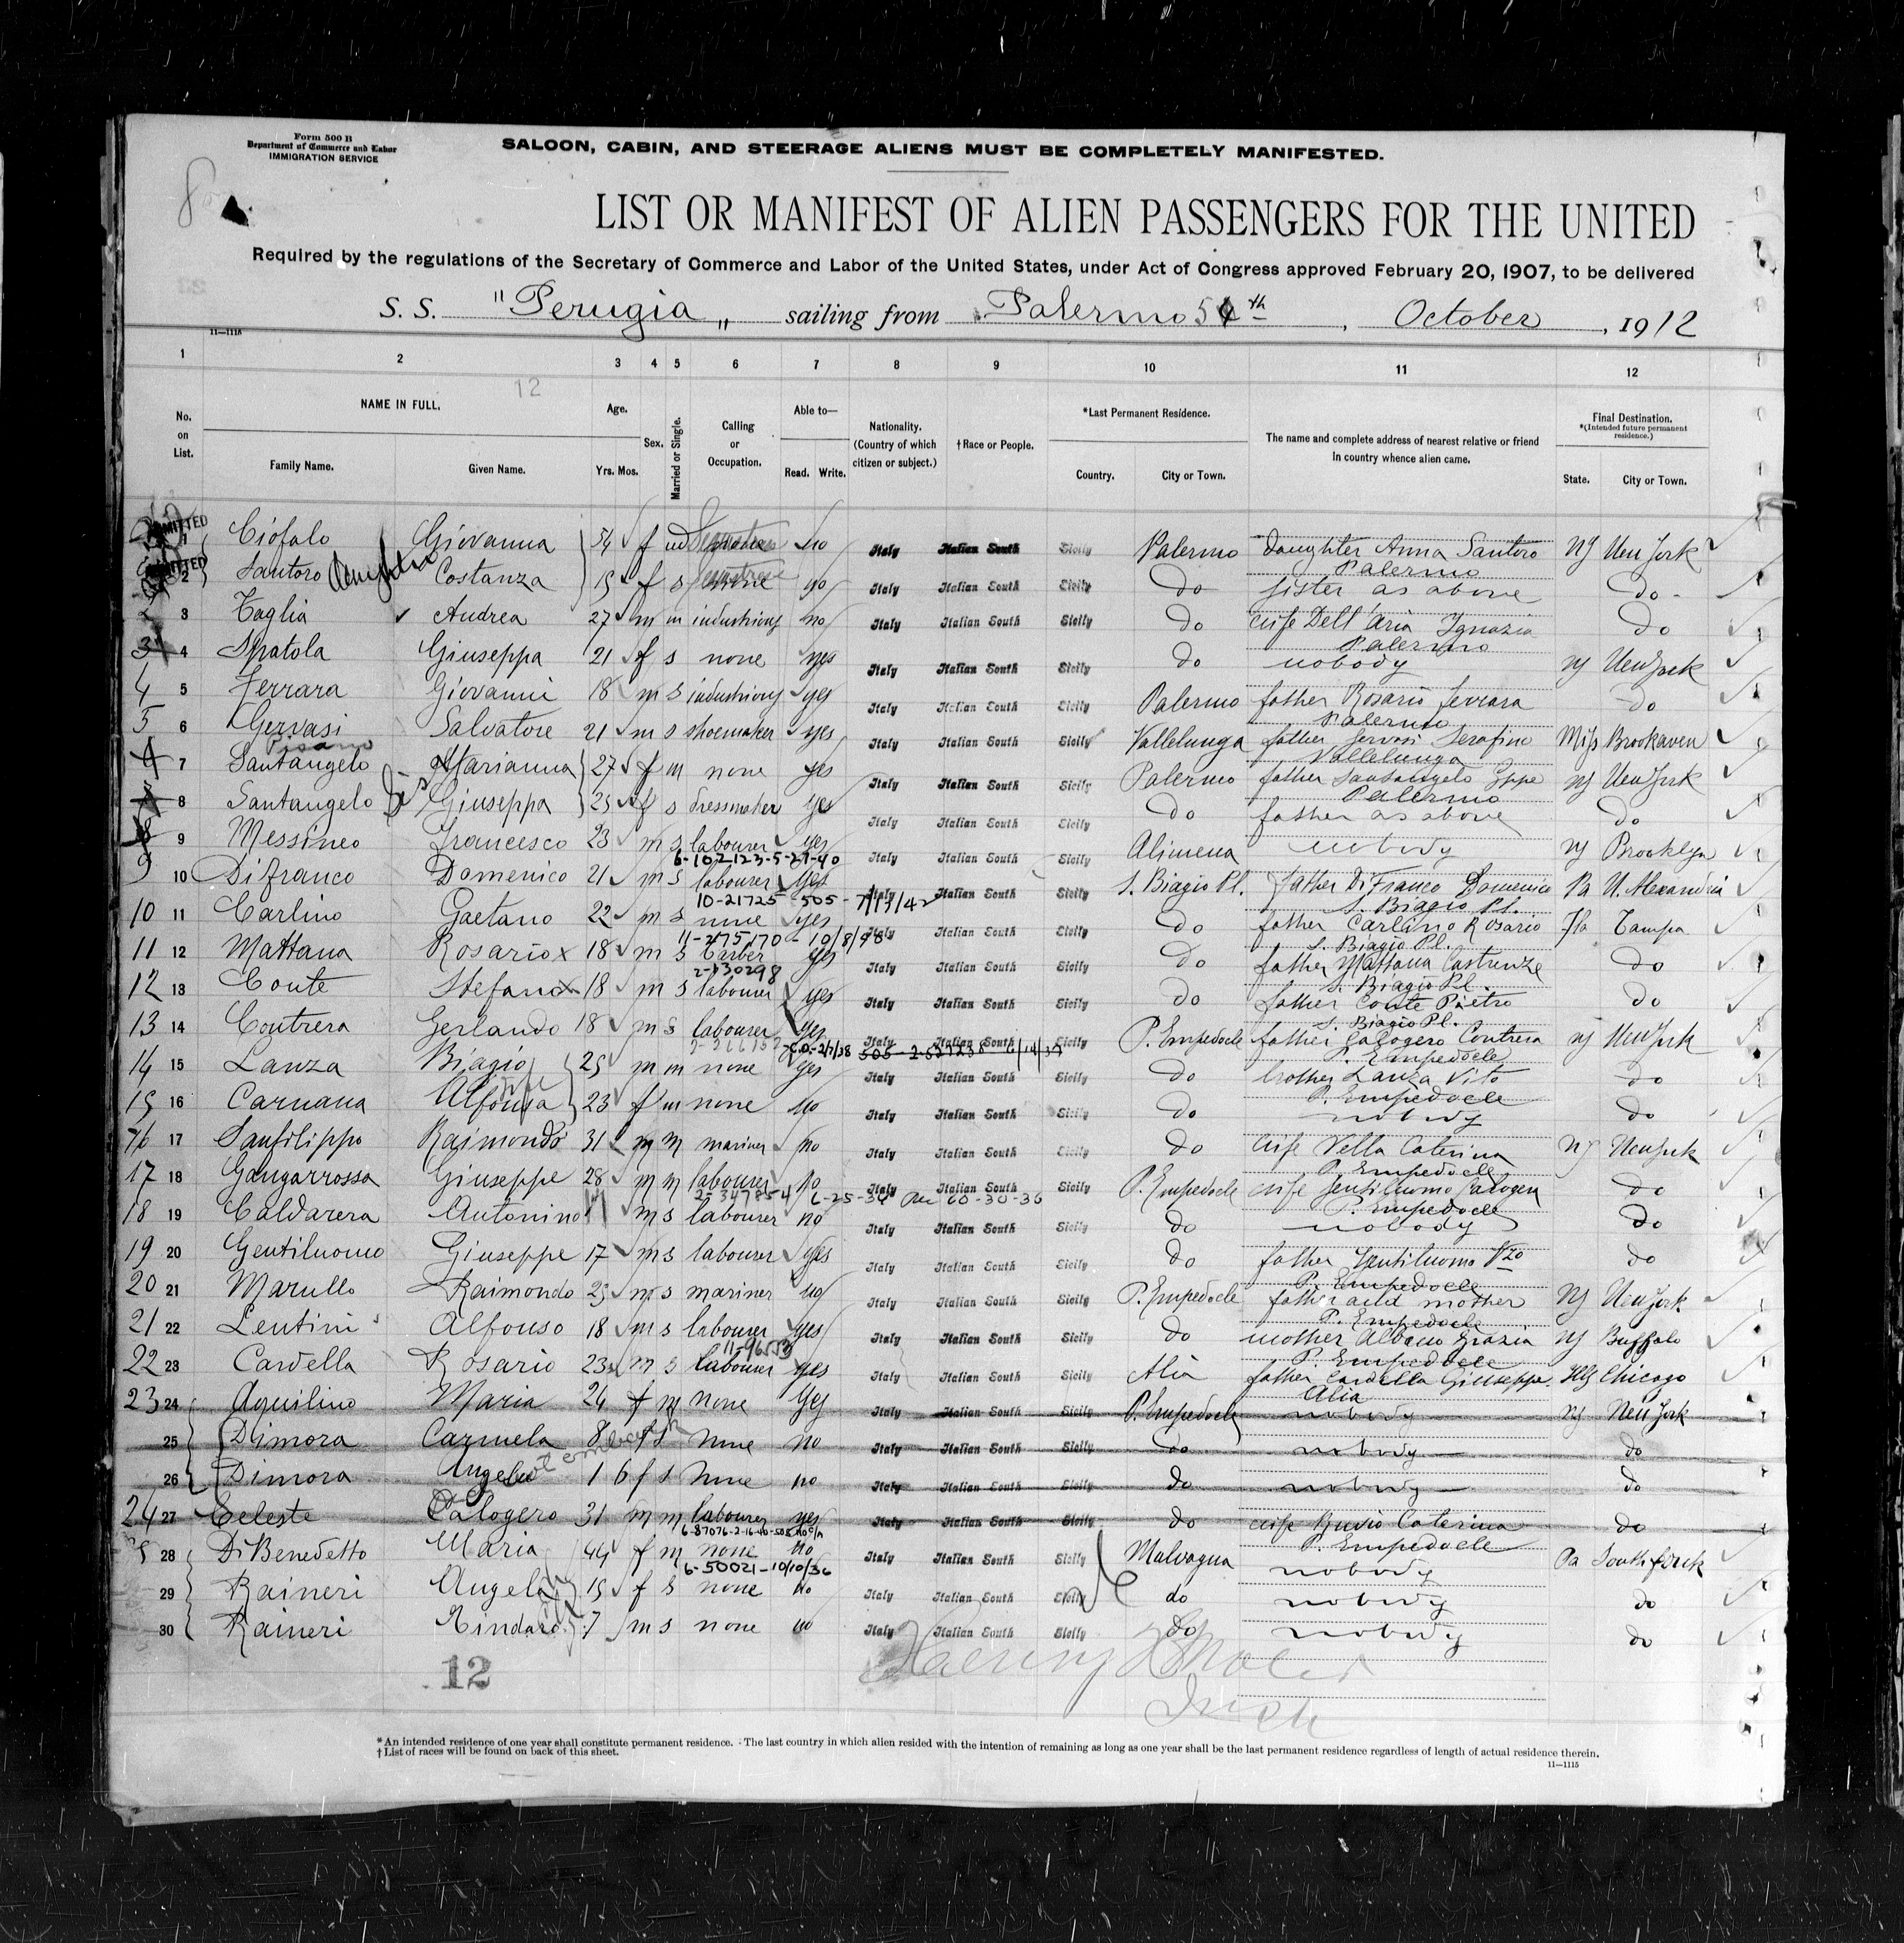 Form 500 B
Department of Commerce and Labor
IMMIGRATION SERVICE
SALOON, CABIN, AND STEERAGE ALIENS MUST BE COMPLETELY MANIFESTED.
LIST OR MANIFEST OF ALIEN PASSENGERS FOR THE UNITED
Required by the regulations of the Secretary of Commerce and Labor of the United States, under Act of Congress approved February 20, 1907, to be delivered
S. S. "Perugia" sailing from Palermo 5th, October, 1912
11—1115
1 2 3 4 5 6 7 8 9 10 11 12
12
No. on List. NAME IN FULL. Family Name. Given Name. Age. Yrs. Mos. Sex. Married or Single. Calling or Occupation. Able to— Read. Write. Nationality. (Country of which citizen or subject.) †Race or People. *Last Permanent Residence. Country. City or Town. The name and complete address of nearest relative or friend in country whence alien came. Final Destination. *(Intended future permanent residence.) State. City or Town.
ADMITTED 1 Ciofalo Giovanna 54 f wd no Italy Italian South Sicily Palermo daughter Anna Santoro Palermo NY New York
ADMITTED 2 Santoro daughter Costanza 19 f s no Italy Italian South Sicily Do sister as above Do
2 3 Taglia Andrea 27 m m no Italy Italian South Sicily Do wife Dell'Aria Ignazia Palermo Do
3 4 Spatola Giuseppa 21 f s none yes Italy Italian South Sicily Do nobody NY New York
4 5 Ferrara Giovanni 18 m s yes Italy Italian South Sicily Palermo father Rosario Ferrara Palermo Do
5 6 Gervasi Salvatore 21 m s shoemaker yes Italy Italian South Sicily Vallelunga father Gervasi Serafino Vallelunga Miss Brookaven
Pisano
7 Santangelo Marianna 27 f m none yes Italy Italian South Sicily Palermo father Santangelo Gppe Palermo NY New York
8 Santangelo sis Giuseppa 25 f s dressmaker yes Italy Italian South Sicily Do father as above Do
8 9 Messineo Francesco 23 m s labourer yes Italy Italian South Sicily Alimena nobody NY Brooklyn
6-102123-5-27-40
9 10 Di Franco Domenico 21 m s labourer yes Italy Italian South Sicily S. Biagio Pl. father Di Franco Domenico S. Biagio Pl. Pa N. Alexandria
10-21725 505 - 7/13/42
10 11 Carlino Gaetano 22 m s none yes Italy Italian South Sicily Do father Carlino Rosario S. Biagio Pl. Fla Tampa
11-275170 - 10/8/98
11 12 Mattana Rosario x 18 m s barber yes Italy Italian South Sicily Do father Mattana Castrenze S. Biagio Pl. Do
2-130298
12 13 Conte Stefano x 18 m s labourer yes Italy Italian South Sicily Do father Conte Pietro S. Biagio Pl. Do
13 14 Contrera Gerlando 18 m s labourer yes Italy Italian South Sicily P. Empedocle father Calogero Contrera P. Empedocle NY New York
14 15 Lanza Biagio 25 m m none yes Italy Italian South Sicily Do brother Lanza Vito P. Empedocle Do
15 16 Caruana wife Alfonsa 23 f m none no Italy Italian South Sicily Do nobody Do
16 17 Sanfilippo Raimondo 31 m m mariner no Italy Italian South Sicily Do wife Vella Caterina P. Empedocle NY New York
17 18 Gangarrossa Giuseppe 28 m m labourer no Italy Italian South Sicily P. Empedocle wife Gentiluomo Calogera P. Empedocle Do
2-347854 6-25-36
18 19 Caldarera Antonino m s labourer no Italy Italian South Sicily Do nobody Do
19 20 Gentiluomo Giuseppe 17 m s labourer yes Italy Italian South Sicily Do father Gentiluomo Vzo P. Empedocle Do
20 21 Marullo Raimondo 25 m s mariner no Italy Italian South Sicily P. Empedocle father and mother P. Empedocle NY New York
21 22 Lentini Alfonso 18 m s labourer yes Italy Italian South Sicily Do mother Albano Grazia P. Empedocle NY Buffalo
22 23 Cardella Rosario 23 m s labourer yes Italy Italian South Sicily Alia father Cardella Giuseppe Alia Ills Chicago
23 24 Aquilino Maria 24 f m none yes Italy Italian South Sicily P. Empedocle nobody NY New York
25 Dimora Carmela 8 f s none no Italy Italian South Sicily Do nobody Do
26 Dimora Angela 1 6 f s none no Italy Italian South Sicily Do nobody Do
24 27 Celeste Calogero 31 m m labourer yes Italy Italian South Sicily Do wife Caterina P. Empedocle Do
6-87076-2-16-40-505
28 Di Benedetto Maria 44 f m none no Italy Italian South Sicily Malvagna nobody Pa South fork
6-50021-10/10/36
29 Raineri Angela 15 f s none no Italy Italian South Sicily do nobody do
30 Raineri Tindaro 7 m s none no Italy Italian South Sicily do nobody do
12
*An intended residence of one year shall constitute permanent residence. The last country in which alien resided with the intention of remaining as long as one year shall be the last permanent residence regardless of length of actual residence therein.
†List of races will be found on back of this sheet.
11—1115